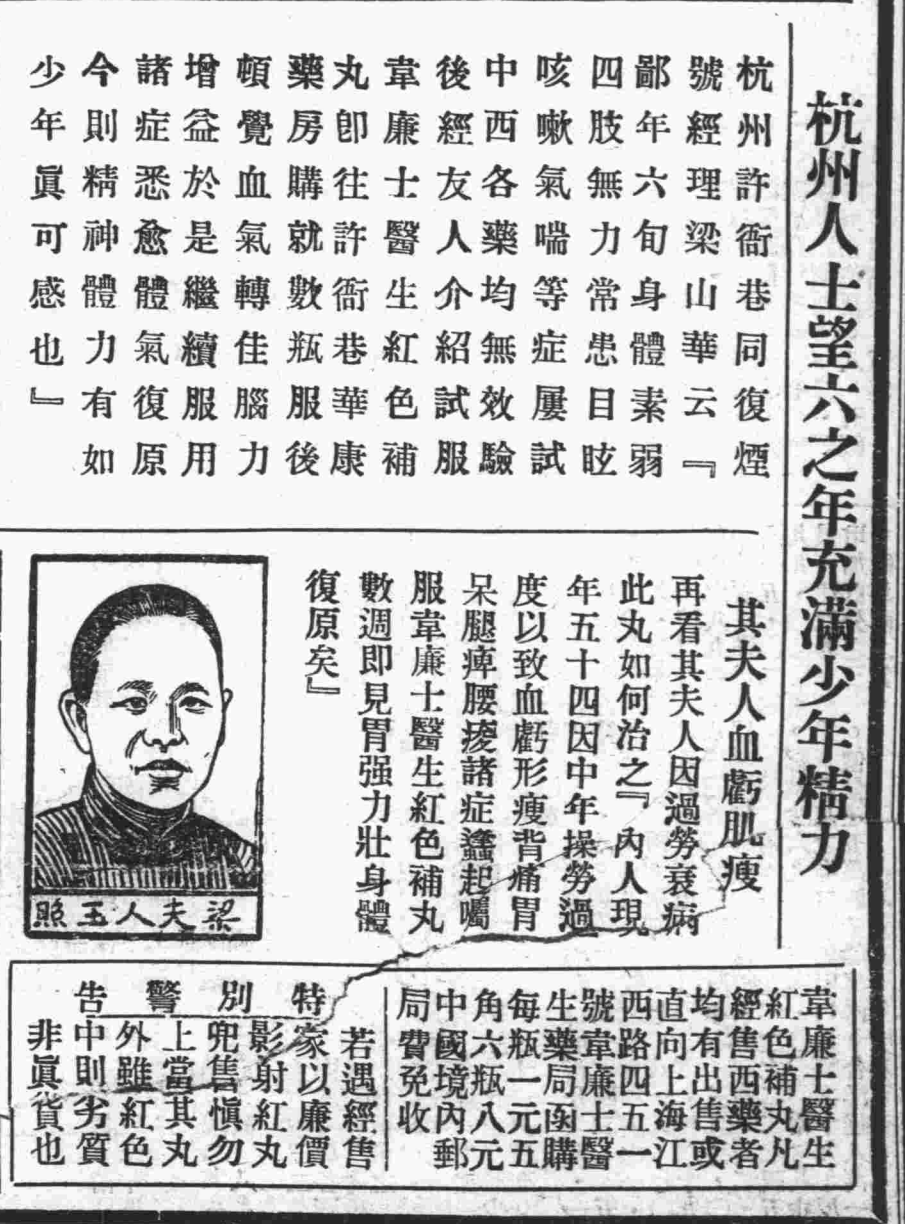 杭州人士望六之年充滿少年精力
杭州許衙巷同復煙
號經理梁山華云『
鄙年六旬身體素弱
四肢無力常患目眩
咳嗽氣喘等症屢試
中西各藥均無效驗
後經友人介紹試服
韋廉士醫生紅色補
丸卽往許衙巷華康
藥房購就數瓶服後
頓覺血氣轉佳腦力
增益於是繼續服用
諸症悉愈體氣復原
今則精神體力有如
少年眞可感也』
其夫人血虧肌瘦
再看其夫人因過勞衰病
此丸如何治之『內人現
年五十四因中年操勞過
度以致血虧形瘦背痛胃
呆腿痺腰痠諸症蠭起囑
服韋廉士醫生紅色補丸
數週即見胃强力壯身體
復原矣』
梁夫人玉照
韋廉士醫生
紅色補丸凡
經售西藥者
均有出售或
直向上海江
西路四五一
號韋廉士醫
生藥局函購
每瓶一元五
角六瓶八元
中國境內郵
局費免收
特別警告
若遇經售
家以廉價
影射紅丸
兜售愼勿
上當其丸
外雖紅色
中則劣質
非眞貨也